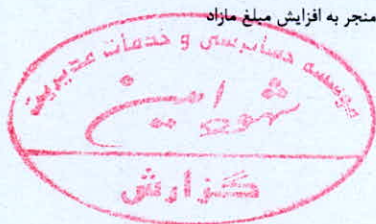 منجر به افزایش مبلغ مازاد
موسسه حسابرسی و خدمات مدیریت
شهود امین
گزارش